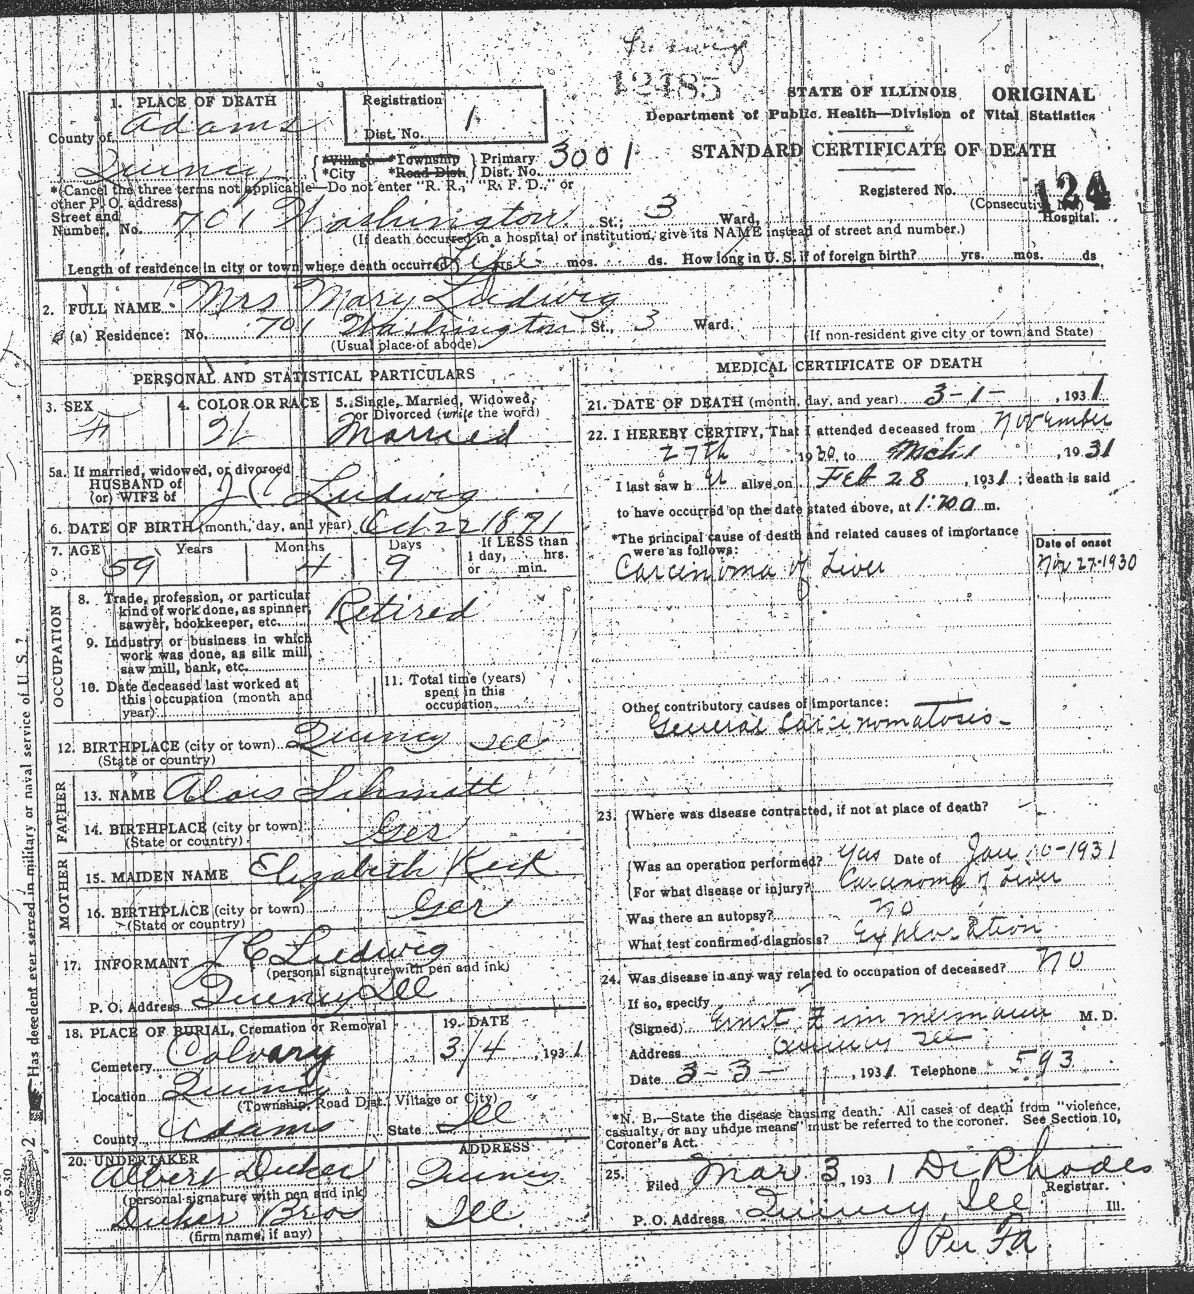 Quincy
12485
STATE OF ILLINOIS ORIGINAL
Department of Public Health—Division of Vital Statistics
STANDARD CERTIFICATE OF DEATH
Registered No. 124
(Consecutive No.)
Hospital.
1. PLACE OF DEATH
County of Adams
Registration
Dist. No. 1
Quincy { *Village *Township } Primary 3001
*City *Road Dist. Dist. No.
*(Cancel the three terms not applicable—Do not enter "R. R.," "R. F. D.," or
other P. O. address)
Street and
Number, No. 701 Washington St.; 3 Ward,
(If death occurred in a hospital or institution, give its NAME instead of street and number.)
Length of residence in city or town where death occurred Life yrs. mos. ds. How long in U. S. if of foreign birth? yrs. mos. ds
2. FULL NAME Mrs Mary Ludwig
(a) Residence: No. 701 Washington St., 3 Ward.
(Usual place of abode) (If non-resident give city or town and State)
PERSONAL AND STATISTICAL PARTICULARS
3. SEX 4. COLOR OR RACE 5. Single, Married, Widowed,
or Divorced (write the word)
F W Married
5a. If married, widowed, or divorced
HUSBAND of
(or) WIFE of J C Ludwig
6. DATE OF BIRTH (month, day, and year) Oct 22 1871
7. AGE Years Months Days If LESS than
1 day, hrs.
or min.
59 4 9
OCCUPATION
8. Trade, profession, or particular
kind of work done, as spinner,
sawyer, bookkeeper, etc. Retired
9. Industry or business in which
work was done, as silk mill,
saw mill, bank, etc.
10. Date deceased last worked at
this occupation (month and
year)
11. Total time (years)
spent in this
occupation
12. BIRTHPLACE (city or town) Quincy Ill
(State or country)
FATHER
13. NAME Alois Schmitt
14. BIRTHPLACE (city or town) Ger
(State or country)
MOTHER
15. MAIDEN NAME Elizabeth Keck
16. BIRTHPLACE (city or town) Ger
(State or country)
17. INFORMANT J C Ludwig
(personal signature with pen and ink)
P. O. Address Quincy Ill
18. PLACE OF BURIAL, Cremation or Removal 19. DATE
Cemetery Calvary 3/4, 1931
Location Quincy
(Township, Road Dist., Village or City)
County Adams State Ill
20. UNDERTAKER ADDRESS
Albert Duker Quincy
(personal signature with pen and ink)
Duker Bros Ill
(firm name, if any)
MEDICAL CERTIFICATE OF DEATH
21. DATE OF DEATH (month, day, and year) 3-1-, 1931
22. I HEREBY CERTIFY, That I attended deceased from November
27th 1930, to Mch 1, 1931
I last saw her alive on Feb 28, 1931; death is said
to have occurred on the date stated above, at m.
*The principal cause of death and related causes of importance
were as follows:
Date of onset
Carcinoma of Liver Nov 27-1930
Other contributory causes of importance:
General Carcinomatosis-
23. Where was disease contracted, if not at place of death?
Was an operation performed? Yas Date of Jan 10-1931
For what disease or injury? Carcinoma of Liver
Was there an autopsy? no
What test confirmed diagnosis? Exploration
24. Was disease in any way related to occupation of deceased? No
If so, specify
(Signed) Ernst Zimmermann M. D.
Address Quincy Ill
Date 3-3-, 1931 Telephone 593
*N. B.—State the disease causing death. All cases of death from "violence,
casualty, or any undue means" must be referred to the coroner. See Section 10,
Coroner's Act.
25.
Filed Mar 3, 1931 Dr Rhodes
Registrar.
P. O. Address Quincy, Ill Ill.
Per Fa
Has decedent ever served in military or naval service of U. S.?